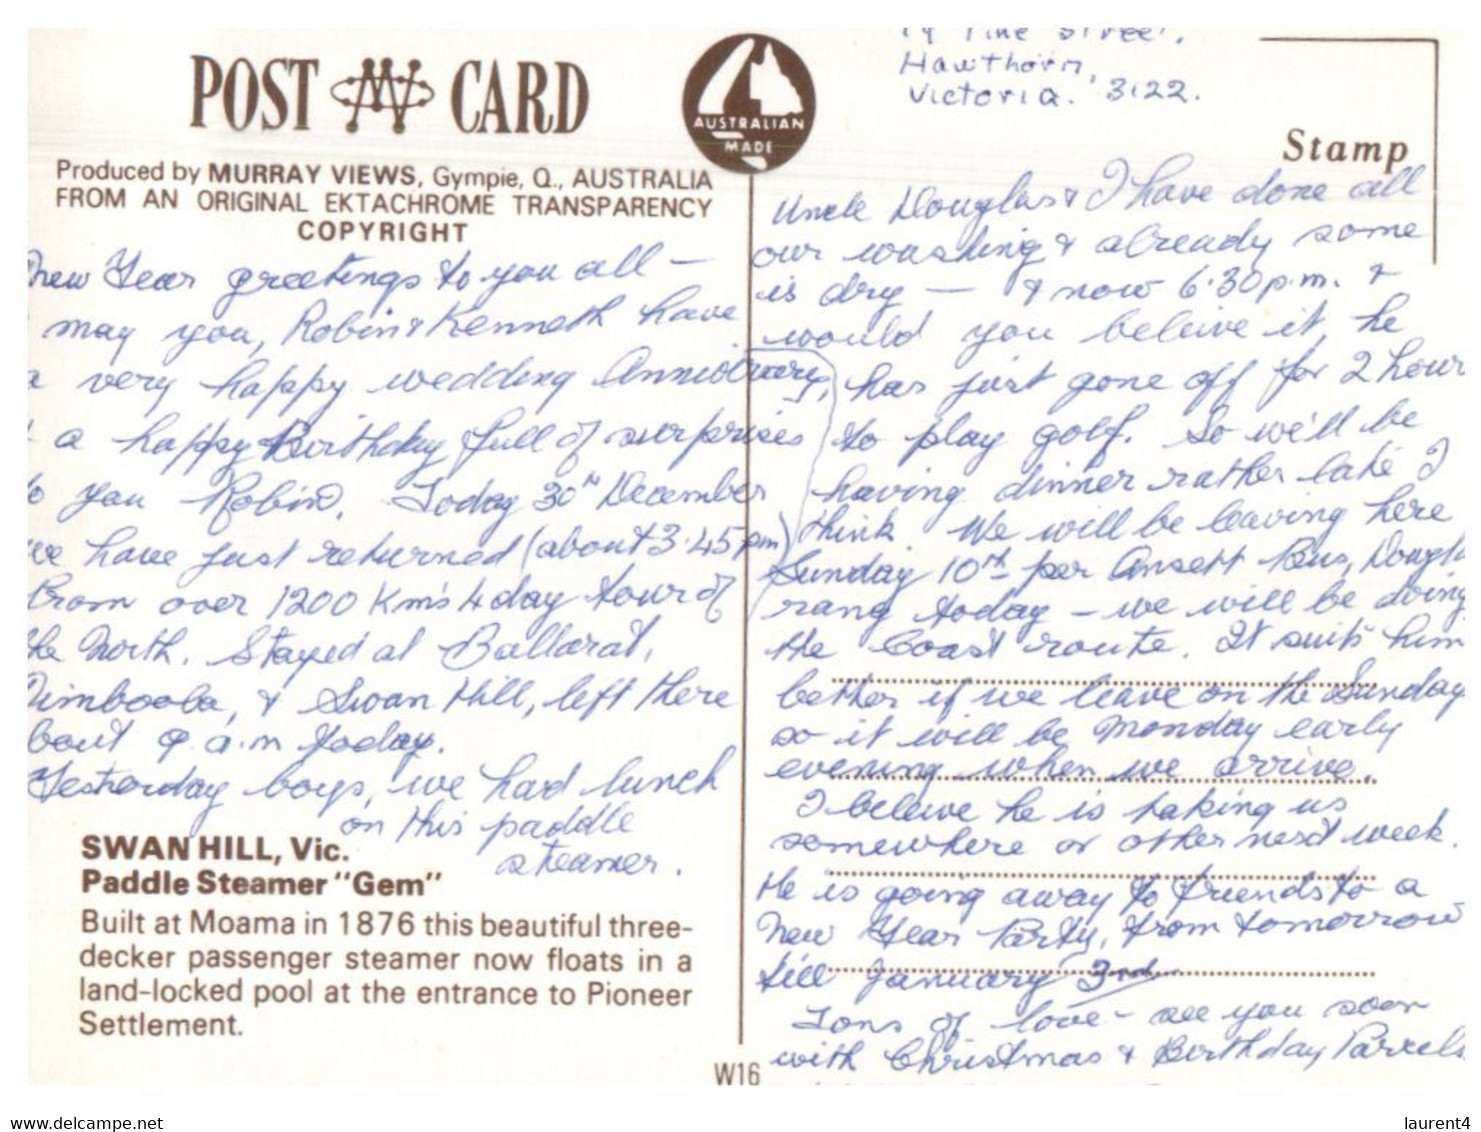 POST CARD
AUSTRALIAN
MADE
Produced by MURRAY VIEWS, Gympie, Q., AUSTRALIA
FROM AN ORIGINAL EKTACHROME TRANSPARENCY
COPYRIGHT
New Year greetings to you all —
may you, Robin & Kenneth have
a very happy wedding Anniversary,
& a happy Birthday full of surprises
to you Robin. Today 30th December
we have just returned (about 3.45pm)
from over 1200 Km's 4 day tour of
the North. Stayed at Ballarat,
Dimboola, & Swan Hill, left there
bout 9.a.m today.
Yesterday boys, we had lunch
on this paddle
steamer.
SWAN HILL, Vic.
Paddle Steamer "Gem"
Built at Moama in 1876 this beautiful three-
decker passenger steamer now floats in a
land-locked pool at the entrance to Pioneer
Settlement.
W16
Street,
Hawthorn,
Victoria. 3122.
Stamp
Uncle Douglas & I have done all
our washing & already some
is dry — & now 6.30p.m. &
would you beleive it, he
has just gone off for 2 hour
to play golf. So we'll be
having dinner rather late I
think. We will be leaving here
Sunday 10th per Ansett Bus, Dougl
rang today — we will be doing
the Coast route. It suits him
better if we leave on the Sunday
so it will be Monday early
evening when we arrive.
I beleive he is taking us
somewhere or other next week.
He is going away to friends to a
New Year Party, from tomorrow
till January 3rd
Tons of love — see you soon
with Christmas & Birthday Parcels
laurent4